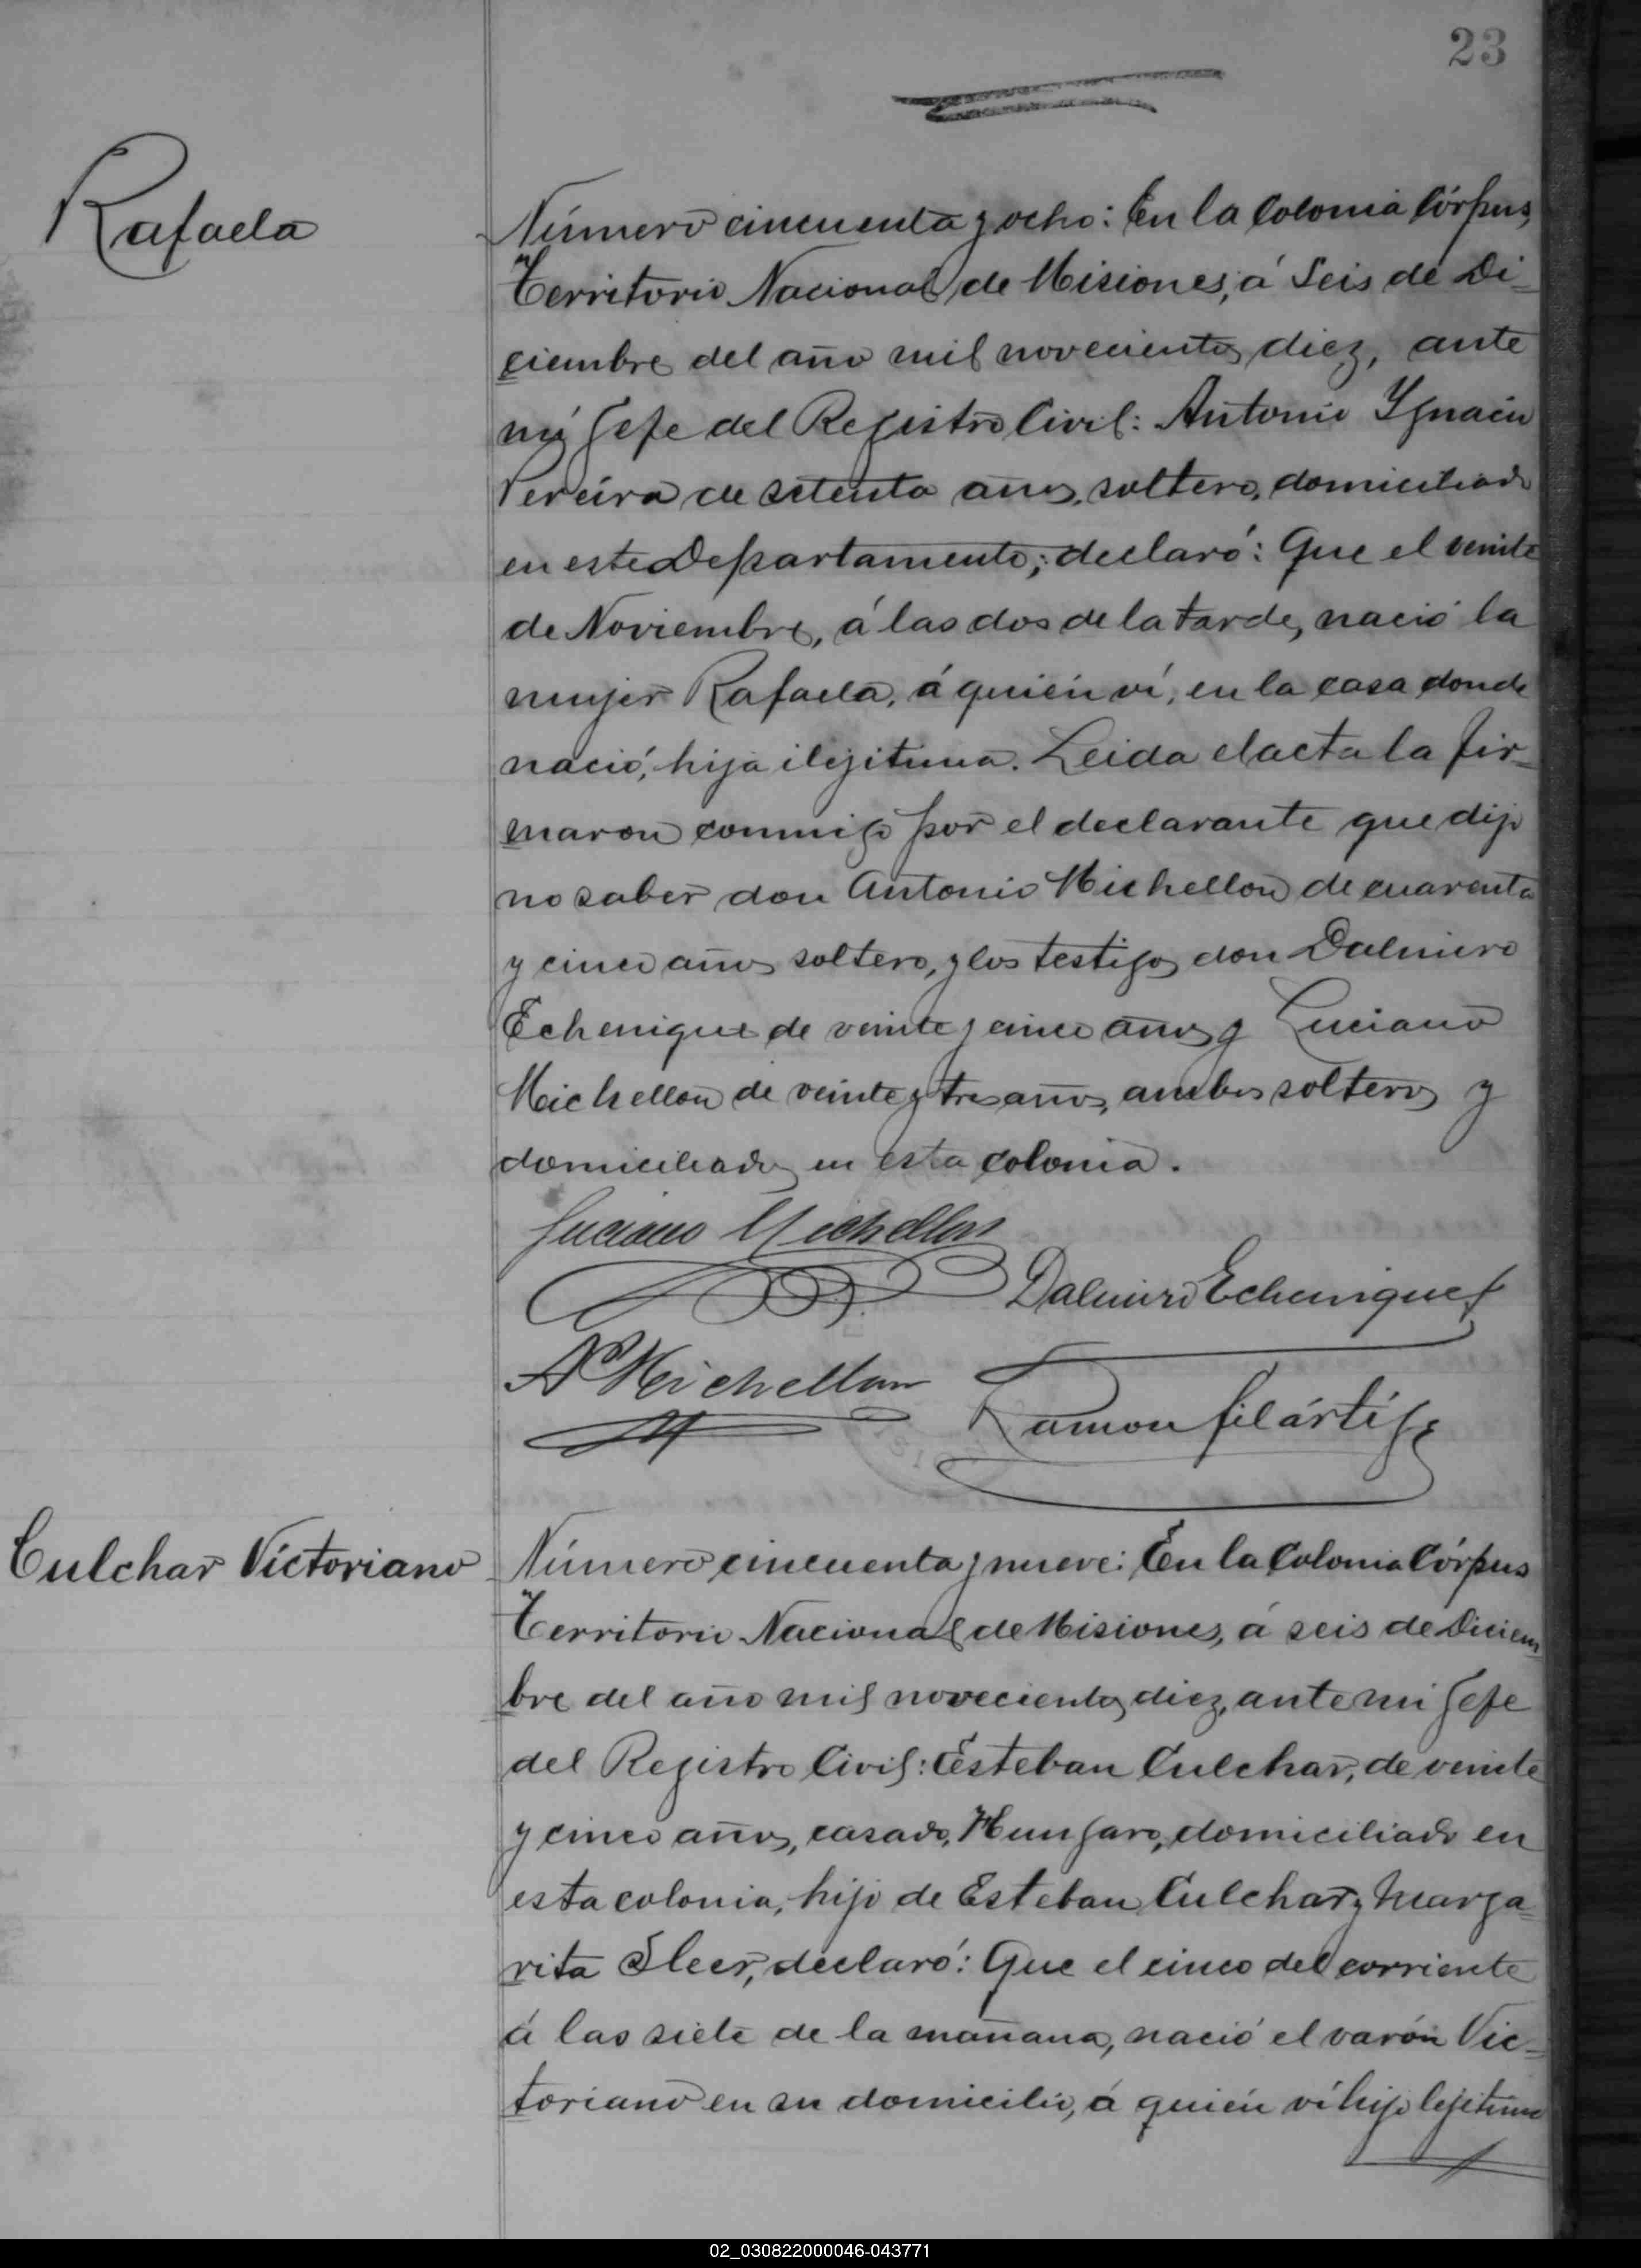 23
Rafaela
Número cincuenta y ocho: En la Colonia Córpus,
Territorio Nacional de Misiones, á Seis de Di-
ciembre del año mil novecientos diez, ante
mí Gefe del Registro Civil: Antonio Ygnacio
Pereira de setenta años, soltero, domiciliado
en este Departamento; declaró: Que el veinte
de Noviembre, á las dos de la tarde, nació la
mujer Rafaela, á quién ví, en la casa donde
nació, hija ilejitima. Leida el acta la fir-
maron conmigo por el declarante que dijo
no saber don Antonio Michellon de cuarenta
y cinco años soltero, y los testigos don Dalmiro
Echenique de veinte y cinco años y Luciano
Michellon de veinte y tres años, ambos solteros y
domiciliados en esta colonia.
Luciano Michellon
Dalmiro Echenique
A Michellon
Ramon Filártiga
Culchar Victoriano
Número cincuenta y nueve: En la Colonia Córpus
Territorio Nacional de Misiones, á seis de Diciem
bre del año mil novecientos diez, ante mi Gefe
del Registro Civil: Esteban Culchar, de veinte
y cinco años, casado, Hungaro, domiciliado en
esta colonia, hijo de Esteban Culchar y Marga-
rita Sleer, declaró: Que el cinco del corriente
á las siete de la mañana, nació el varón Vic-
toriano en su domicilio, á quién ví hijo lejitimo
02_030822000046-043771